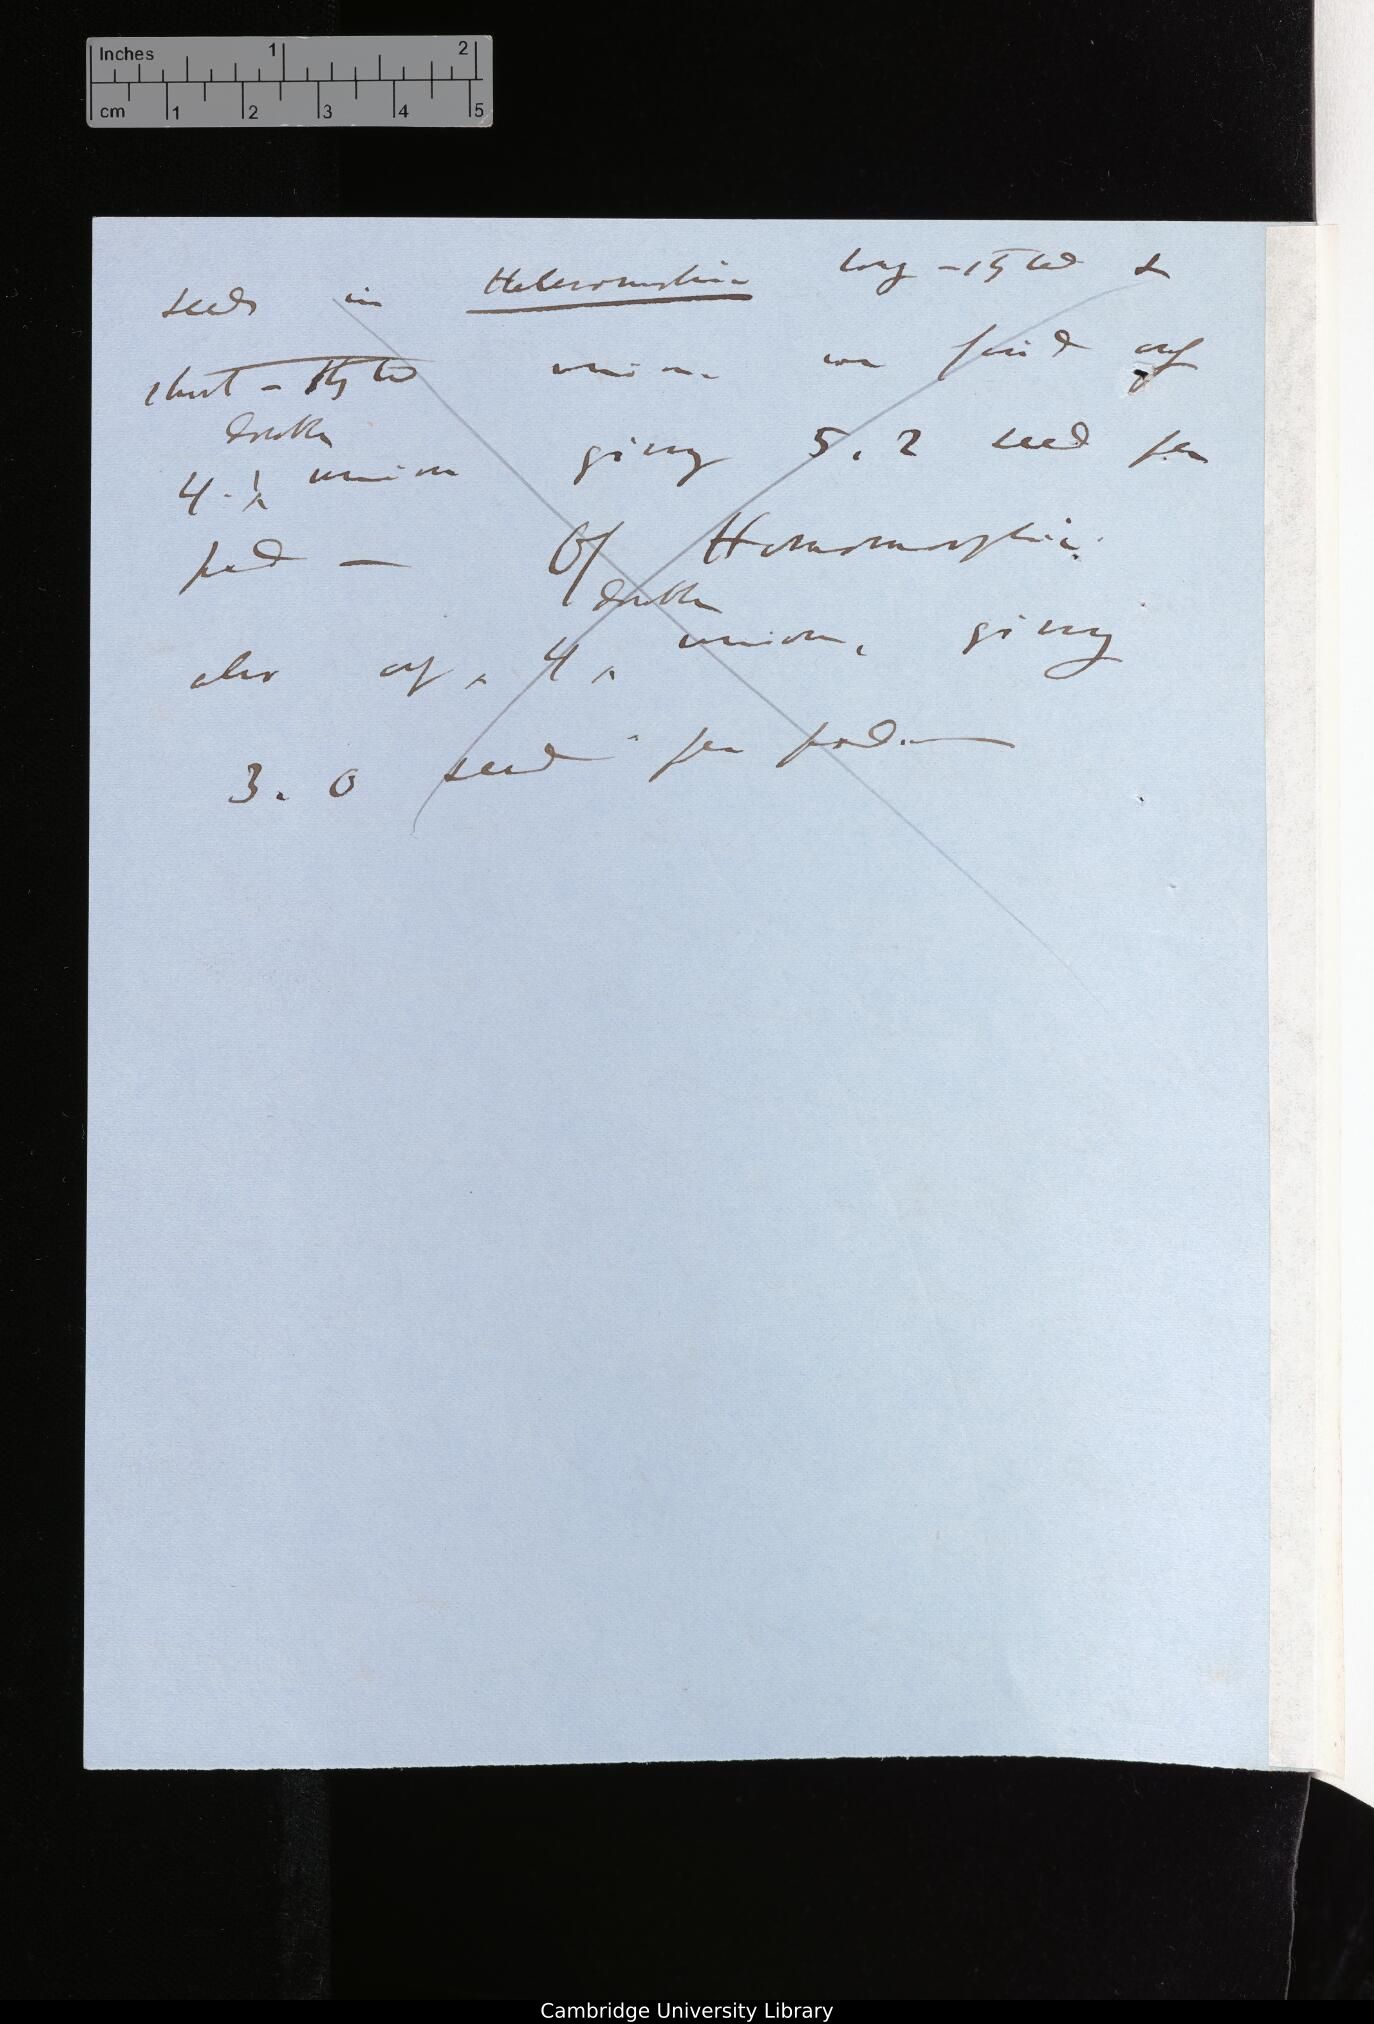 Inches 1 2
cm 1 2 3 4 5
seeds in Heteromorphic long-styled &
short-styled union we find only
double
4 union giving 5.2 seed per
pod — Of Homomorphic
double
also only 4 union, giving
3.0 seed per pod.—
Cambridge University Library